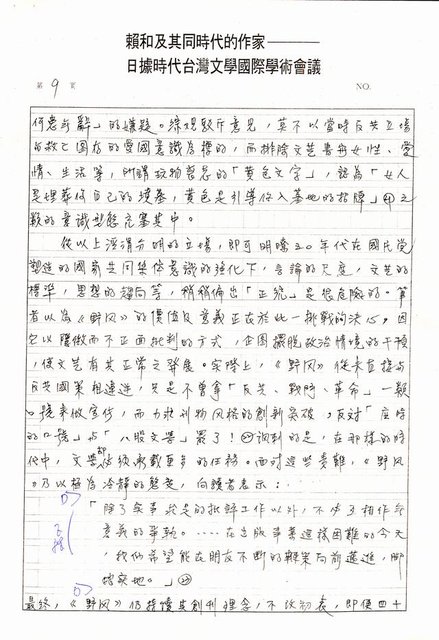 賴和及其同時代的作家———
日據時代台灣文學國際學術會議
第 9 頁 NO.
何患無辭」的嫌疑。綜觀駁斥意見,莫不以當時反共立場
的救亡圖存的愛國意識為標的,而排除文藝書寫女性、愛
情、生活等,所謂玩物喪志的「黃色文字」,認為「女人
是埋葬你自己的墳墓,黃色是引導你入墓地的招牌」㉑之
類的意識型態充塞其中。
從以上涇渭分明的立場,即可明瞭五0年代在國民黨
塑造的國家共同集体意識的強化下,言論的尺度,文藝的
標準,思想的趨向等,稍稍偏出「正統」是很危險的。筆
者以為《野风》的價值及意義正在於此一挑戰的決心,因
它以隱微而不正面批判的方式,企圖擺脫政治情境的干預
,使文藝有其正常之發展。實際上,《野风》從未直接与
反共國策相違逆,只是不曾拿「反共、戰鬥、革命」一類
口號來做宣傳,而力求刊物风格的創新突破,反对「
的口號」与「八股文學」罷了!㉒ 的是,在那樣的時
代中,文學却必須承載更多的任務。面对這些責難,《野风
》乃以極為冷靜的態度,向讀者表示:
「除了實事求是的批評工作以外,不必多相作無
意義的爭執。……在出版事業這樣困難的今天
,我們希望能在朋友不斷的鞭策向前邁進,脚
踏實地。」㉓
最終,《野风》仍持續其創刊理念,不改初衷,即便四十